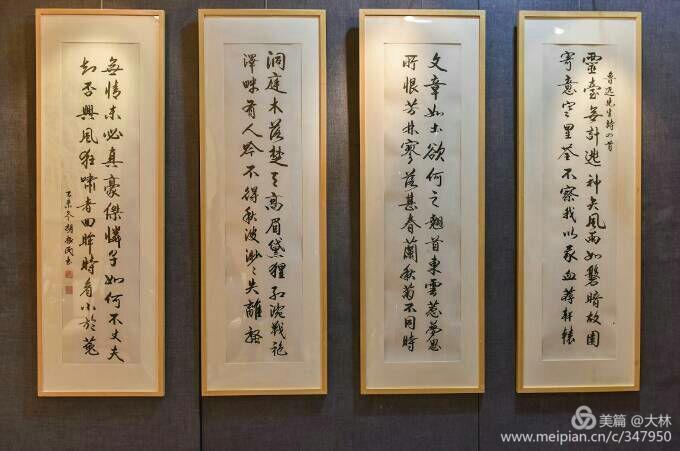 魯迅先生詩四首
靈臺無計逃神矢風雨如磐暗故園
寄意寒星荃不察我以我血薦軒轅
文章如土欲何之翹首東雲惹夢思
所恨芳林寥落甚春蘭秋菊不同時
洞庭木落楚天高眉黛猩紅涴戰袍
澤畔有人吟不得秋波渺〻失離騷
無情未必真豪傑憐子如何不丈夫
知否興風狂嘯者回眸時看小於菟
乙未冬
美篇 @大林
www.meipian.cn/c/347950